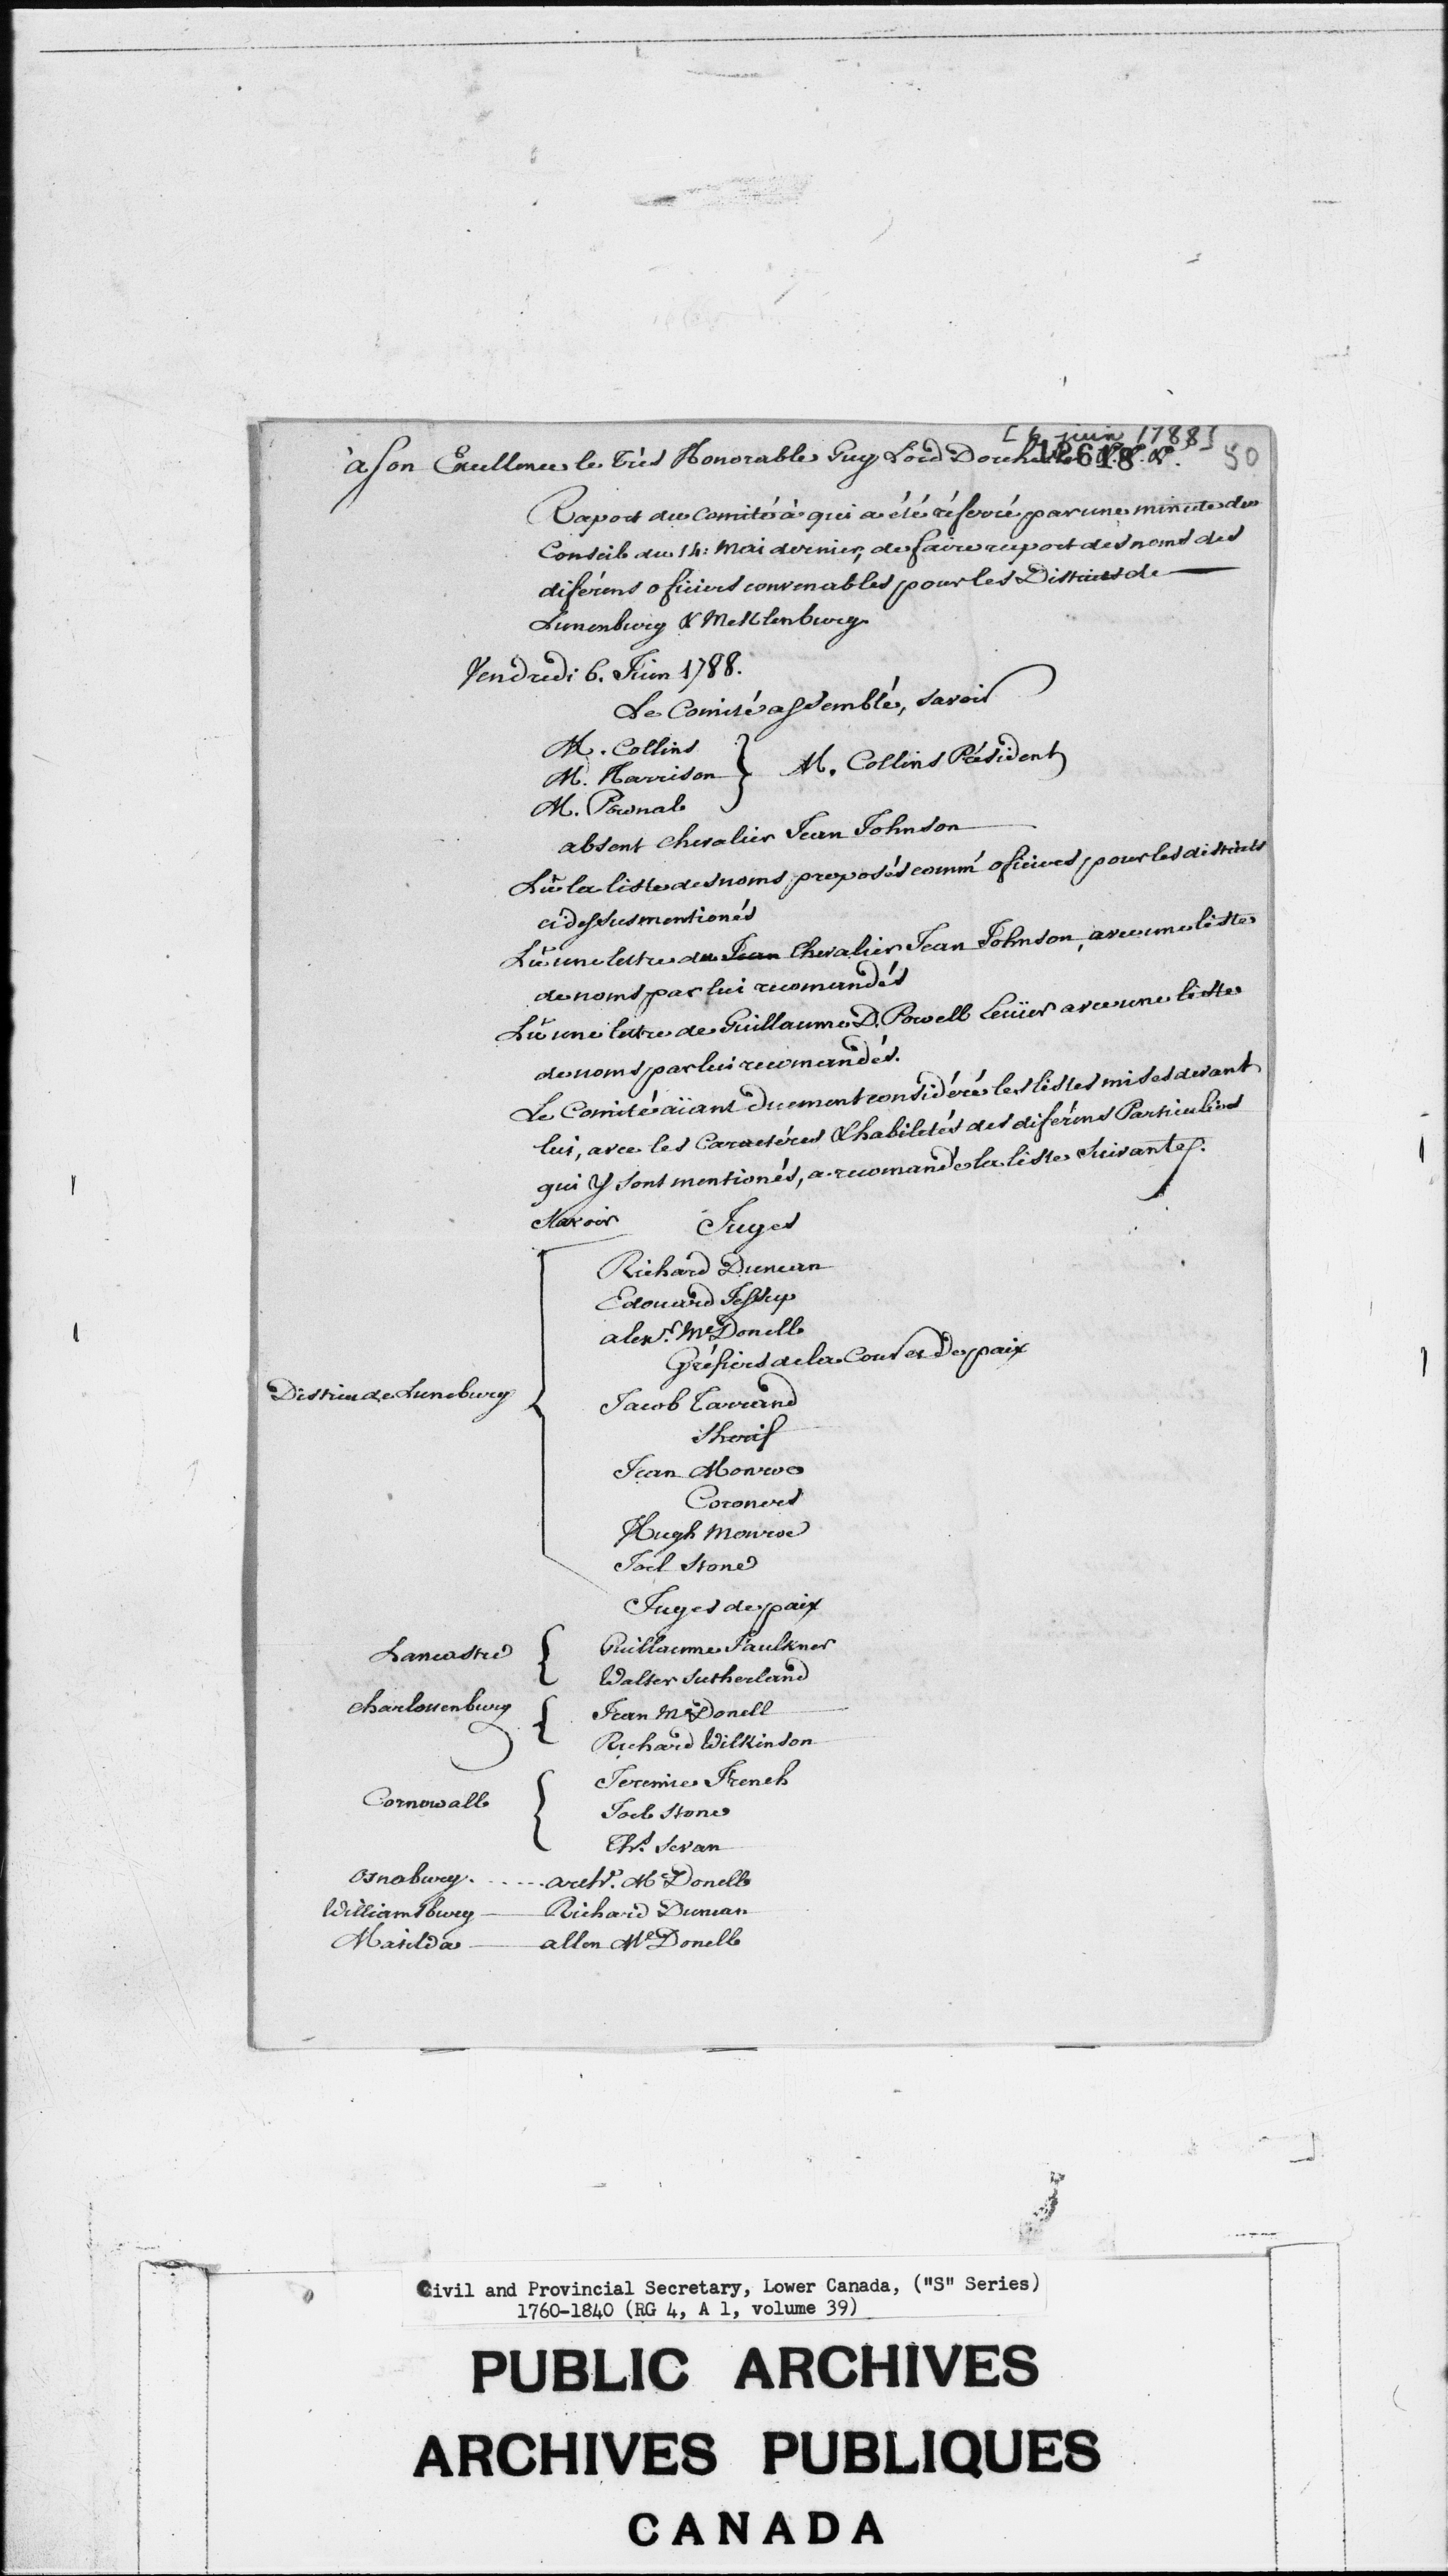 [6 juin 1788]
12618
50
à son Excellence le très Honorable Guy Lord Dorchester &. &. &.
Raport du Comité à qui a été réferré par une minute du
Conseil du 14: Mai dernier, de faire raport des noms des
diférens oficiers convenables pour les Districts de
Lunenburg & Mecklenburg
Vendredi 6. Juin 1788.
Le Comité assemblé, savoir
M. Collins
M. Harrison } M. Collins Président
M. Pownal
absent chevalier Jean Johnson
Lû la liste des noms proposés comm' oficiers pour les districts
ci dessus mentionés
Lû une lettre du Jean Chevalier Jean Johnson, avec une liste
de noms par lui recomandés
Lû une lettre de Guillaume D. Powell Ecuïer avec une liste
de noms par lui recomandés.
Le Comité aïant duement considéré les listes mises devant
lui, avec les Caractéres & habiletés des diférens Particuliers
qui y sont mentionés, a recomandé la liste Suivante.
Savoir Juges
Richard Duncan
Edouard Jessup
alexr. McDonell
Gréfiers de la Cour et De paix
District de Luneburg { Jacob Farrand
Sherif
Jean Monroe
Coroners
Hugh Monroe
Joel Stone
Juges de paix
Lancastre { Guillaume Faulkner
Walter Sutherland
Charlottenburg { Jean McDonell
Richard Wilkinson
Cornwall { Jeremie French
Joel Stone
Ths. Swan
Osnaburg.....archd. McDonell
Williamsburg — Richard Duncan
Matilda — allen McDonell
Civil and Provincial Secretary, Lower Canada, ("S" Series)
1760-1840 (RG 4, A 1, volume 39)
PUBLIC ARCHIVES
ARCHIVES PUBLIQUES
CANADA